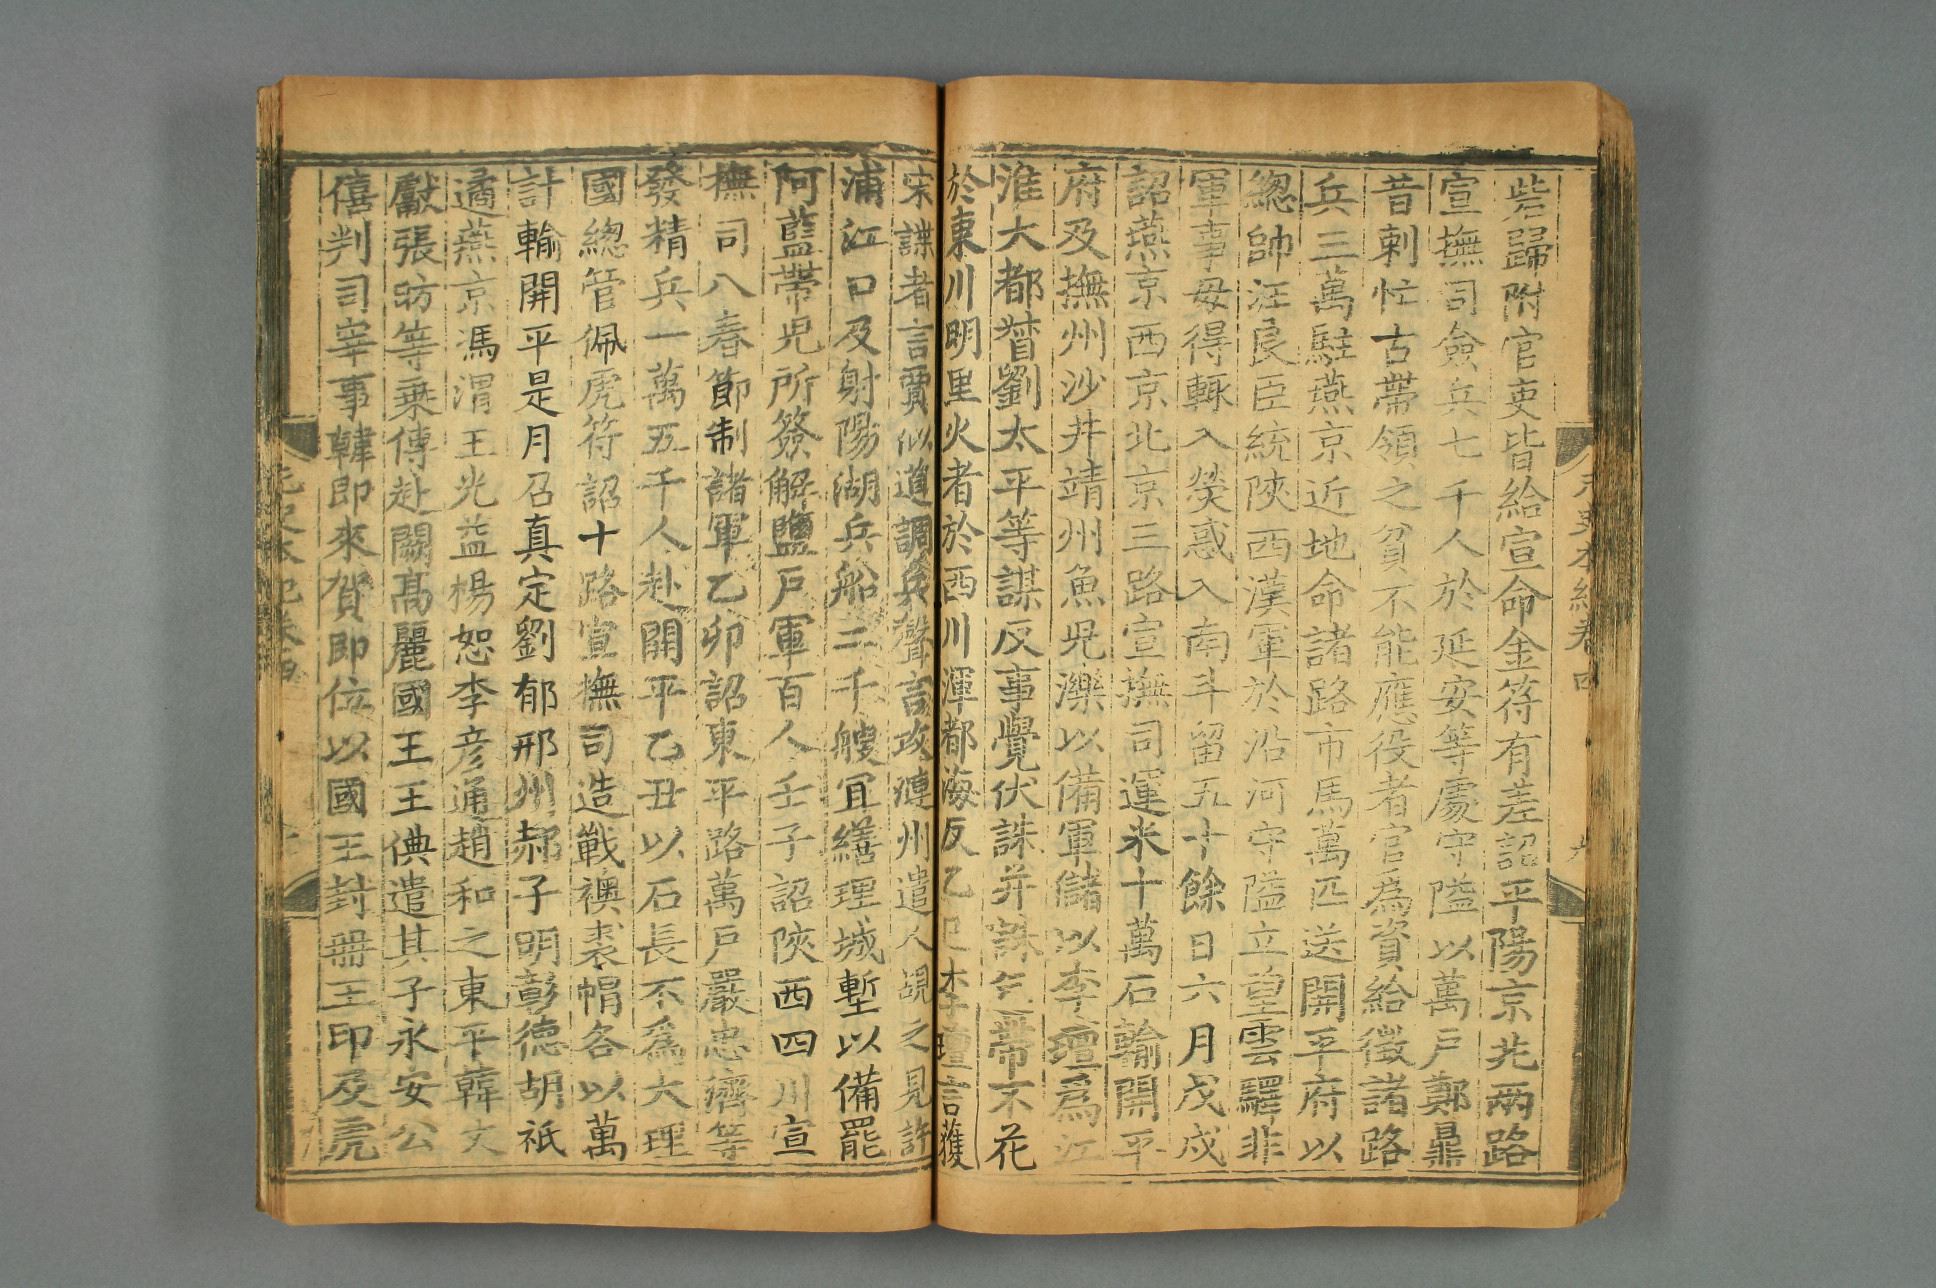 砦歸附官吏皆給宣命金符有差詔平陽京兆兩路
宣撫司僉兵七千人於延安等處守隘以萬戶鄭鼎
昔剌忙古帶領之貧不能應役者官爲資給徵諸路
兵三萬駐燕京近地命諸路市馬萬匹送開平府以
總帥汪良臣統陝西漢軍於沿河守隘立望雲驛非
軍事毋得輒入熒惑入南斗留五十餘日六月戊戌
詔燕京西京北京三路宣撫司運米十萬石輸開平
府及撫州沙井靖州魚兒濼以備軍儲以李璮爲江
淮大都督劉太平等謀反事覺伏誅并誅乞帶不花
於東川明里火者於西川渾都海反乙巳李璮言獲
宋諜者言賈似道調兵聲言攻漣州遣人覘之見許
浦江口及射陽湖兵船二千艘宜繕理城塹以備罷
阿藍帶兒所簽解鹽戶軍百人壬子詔陝西四川宣
撫司八春節制諸軍乙卯詔東平路萬戶嚴忠濟等
發精兵一萬五千人赴開平乙丑以石長不爲大理
國總管佩虎符詔十路宣撫司造戰襖裘帽各以萬
計輸開平是月召真定劉郁邢州郝子明彰德胡祇
遹燕京馮渭王光益楊恕李彦通趙和之東平韓文
獻張昉等乗傳赴闕高麗國王王倎遣其子永安公
僖判司宰事韓即來賀即位以國王封冊王印及虎
元史本紀卷四
九
元史本紀卷四